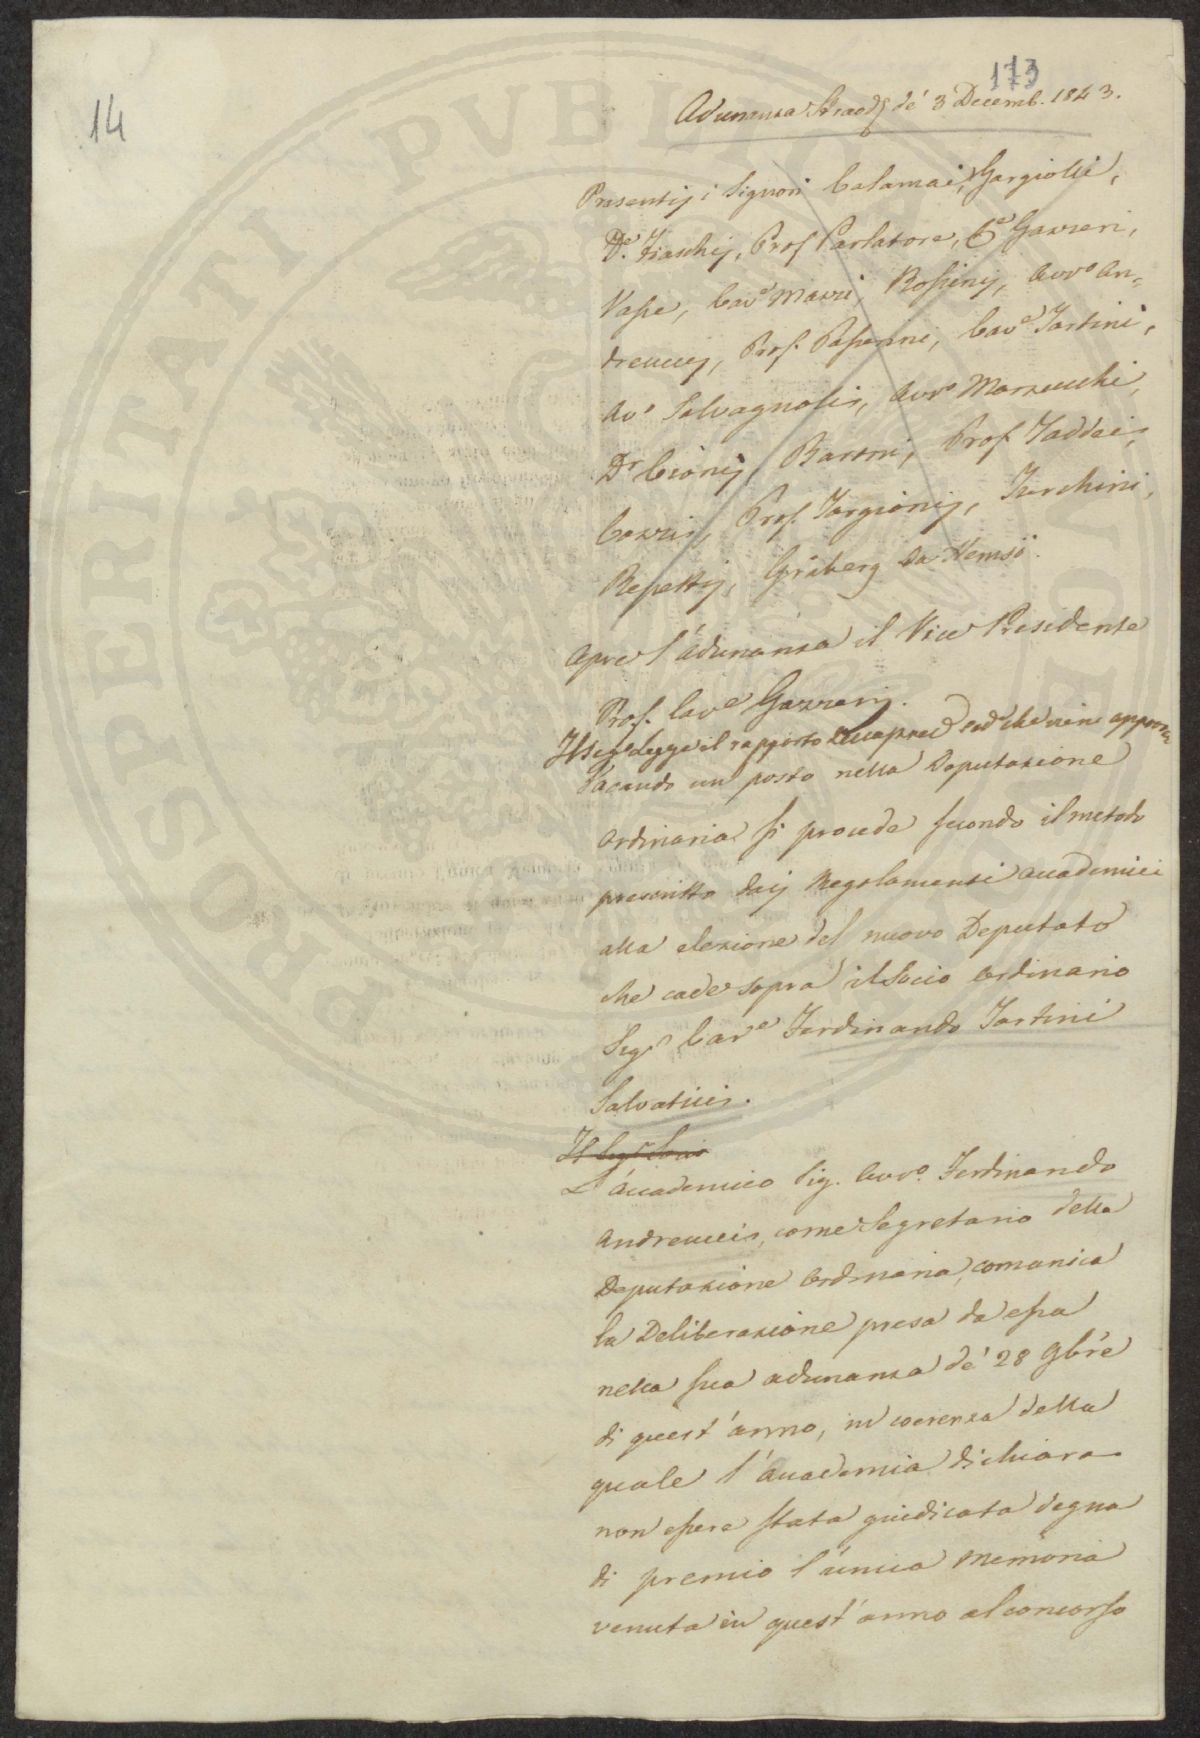 14
173
Adunanza Straord. de' 3 Decemb. 1843.
Presentij i Signori Calamai, Gargiolli,
De. Fiaschij, Prof Parlatore, Ce Gazzeri,
Vasse, Cave Mazzi, Rossinij, Avvo An-
dreuccij, Prof. Passerini, Cave Tartini,
Avo Salvagnolis, Avvo Marzucchi,
Dr Cionij, Barzni, Prof Taddeis,
Cozzis, Prof. Targionij, Terchini,
Repettij, Gråberg da Hemsö.
Apre l'adunanza il Vice Presidente
Prof. Cave Gazzerij.
Il Sego legge il rapporto preced che viene approva
Vacando un posto nella Deputazione
ordinaria si procede secondo il metodo
prescritto daij Regolamenti accademici
alla elezione del nuovo Deputato
che cade sopra il Socio Ordinario
Sigr Cave Ferdinando Tartini
Salvaticis.
Il Sigr Socio
L'accademico Sig. Avvo. Ferdinando
Andreuccis, come Segretario della
Deputazione Ordinaria, comunica
la Deliberazione presa da essa
nella sua adunanza de' 28 9bre
di quest'anno, in coerenza della
quale l'Accademia dichiara
non essere stata giudicata degna
di premio l'unica Memoria
venuta in quest'anno al concorso
PROSPERITATI PVBLICAE